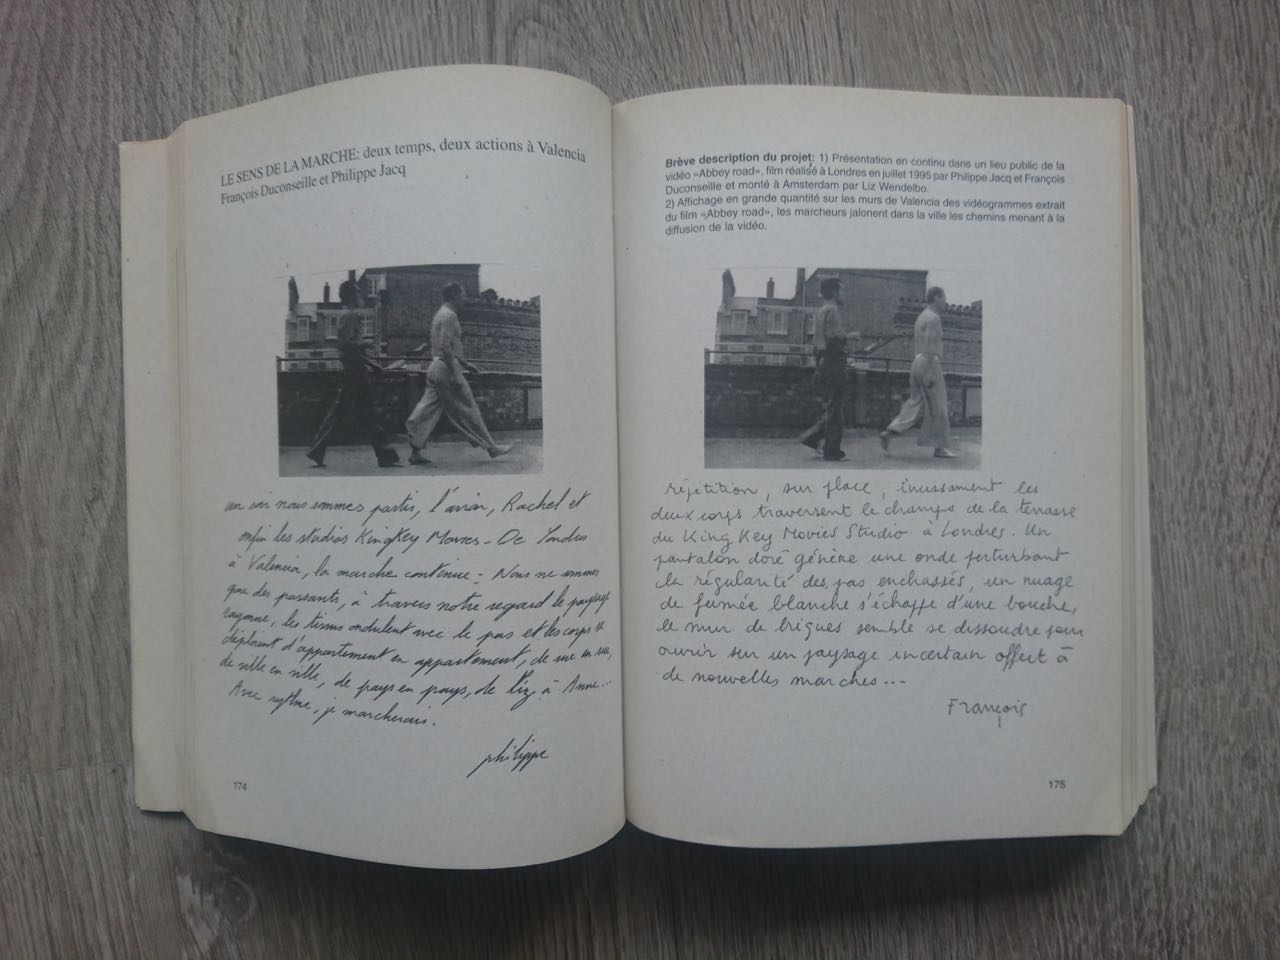 LE SENS DE LA MARCHE: deux temps, deux actions à Valencia
François Duconseille et Philippe Jacq
un soir nous sommes partis, l'avion, Rachel et
enfin les studios KingKey Movies - De Londres
à Valencia, la marche continue - Nous ne sommes
que des passants, à travers notre regard le paysage
rayonne, les tissus ondulent avec le pas et les corps se
déplacent d'appartement en appartement, de rue en rue,
de ville en ville, de pays en pays, de Liz à Anne...
Avec rythme, je marcherais.
philippe
174
Brève description du projet: 1) Présentation en continu dans un lieu public de la
vidéo «Abbey road», film réalisé à Londres en juillet 1995 par Philippe Jacq et François
Duconseille et monté à Amsterdam par Liz Wendelbo.
2) Affichage en grande quantité sur les murs de Valencia des vidéogrammes extrait
du film «Abbey road», les marcheurs jalonent dans la ville les chemins menant à la
diffusion de la vidéo.
répétition, sur place, incessament les
deux corps traversent le champs de la terrasse
du King Key Movies Studio à Londres. Un
pantalon doré génère une onde perturbant
la régularité des pas enchassés, un nuage
de fumée blanche s'échappe d'une bouche,
le mur de briques semble se dissoudre pour
ouvrir sur un paysage incertain offert à
de nouvelles marches...
François
175